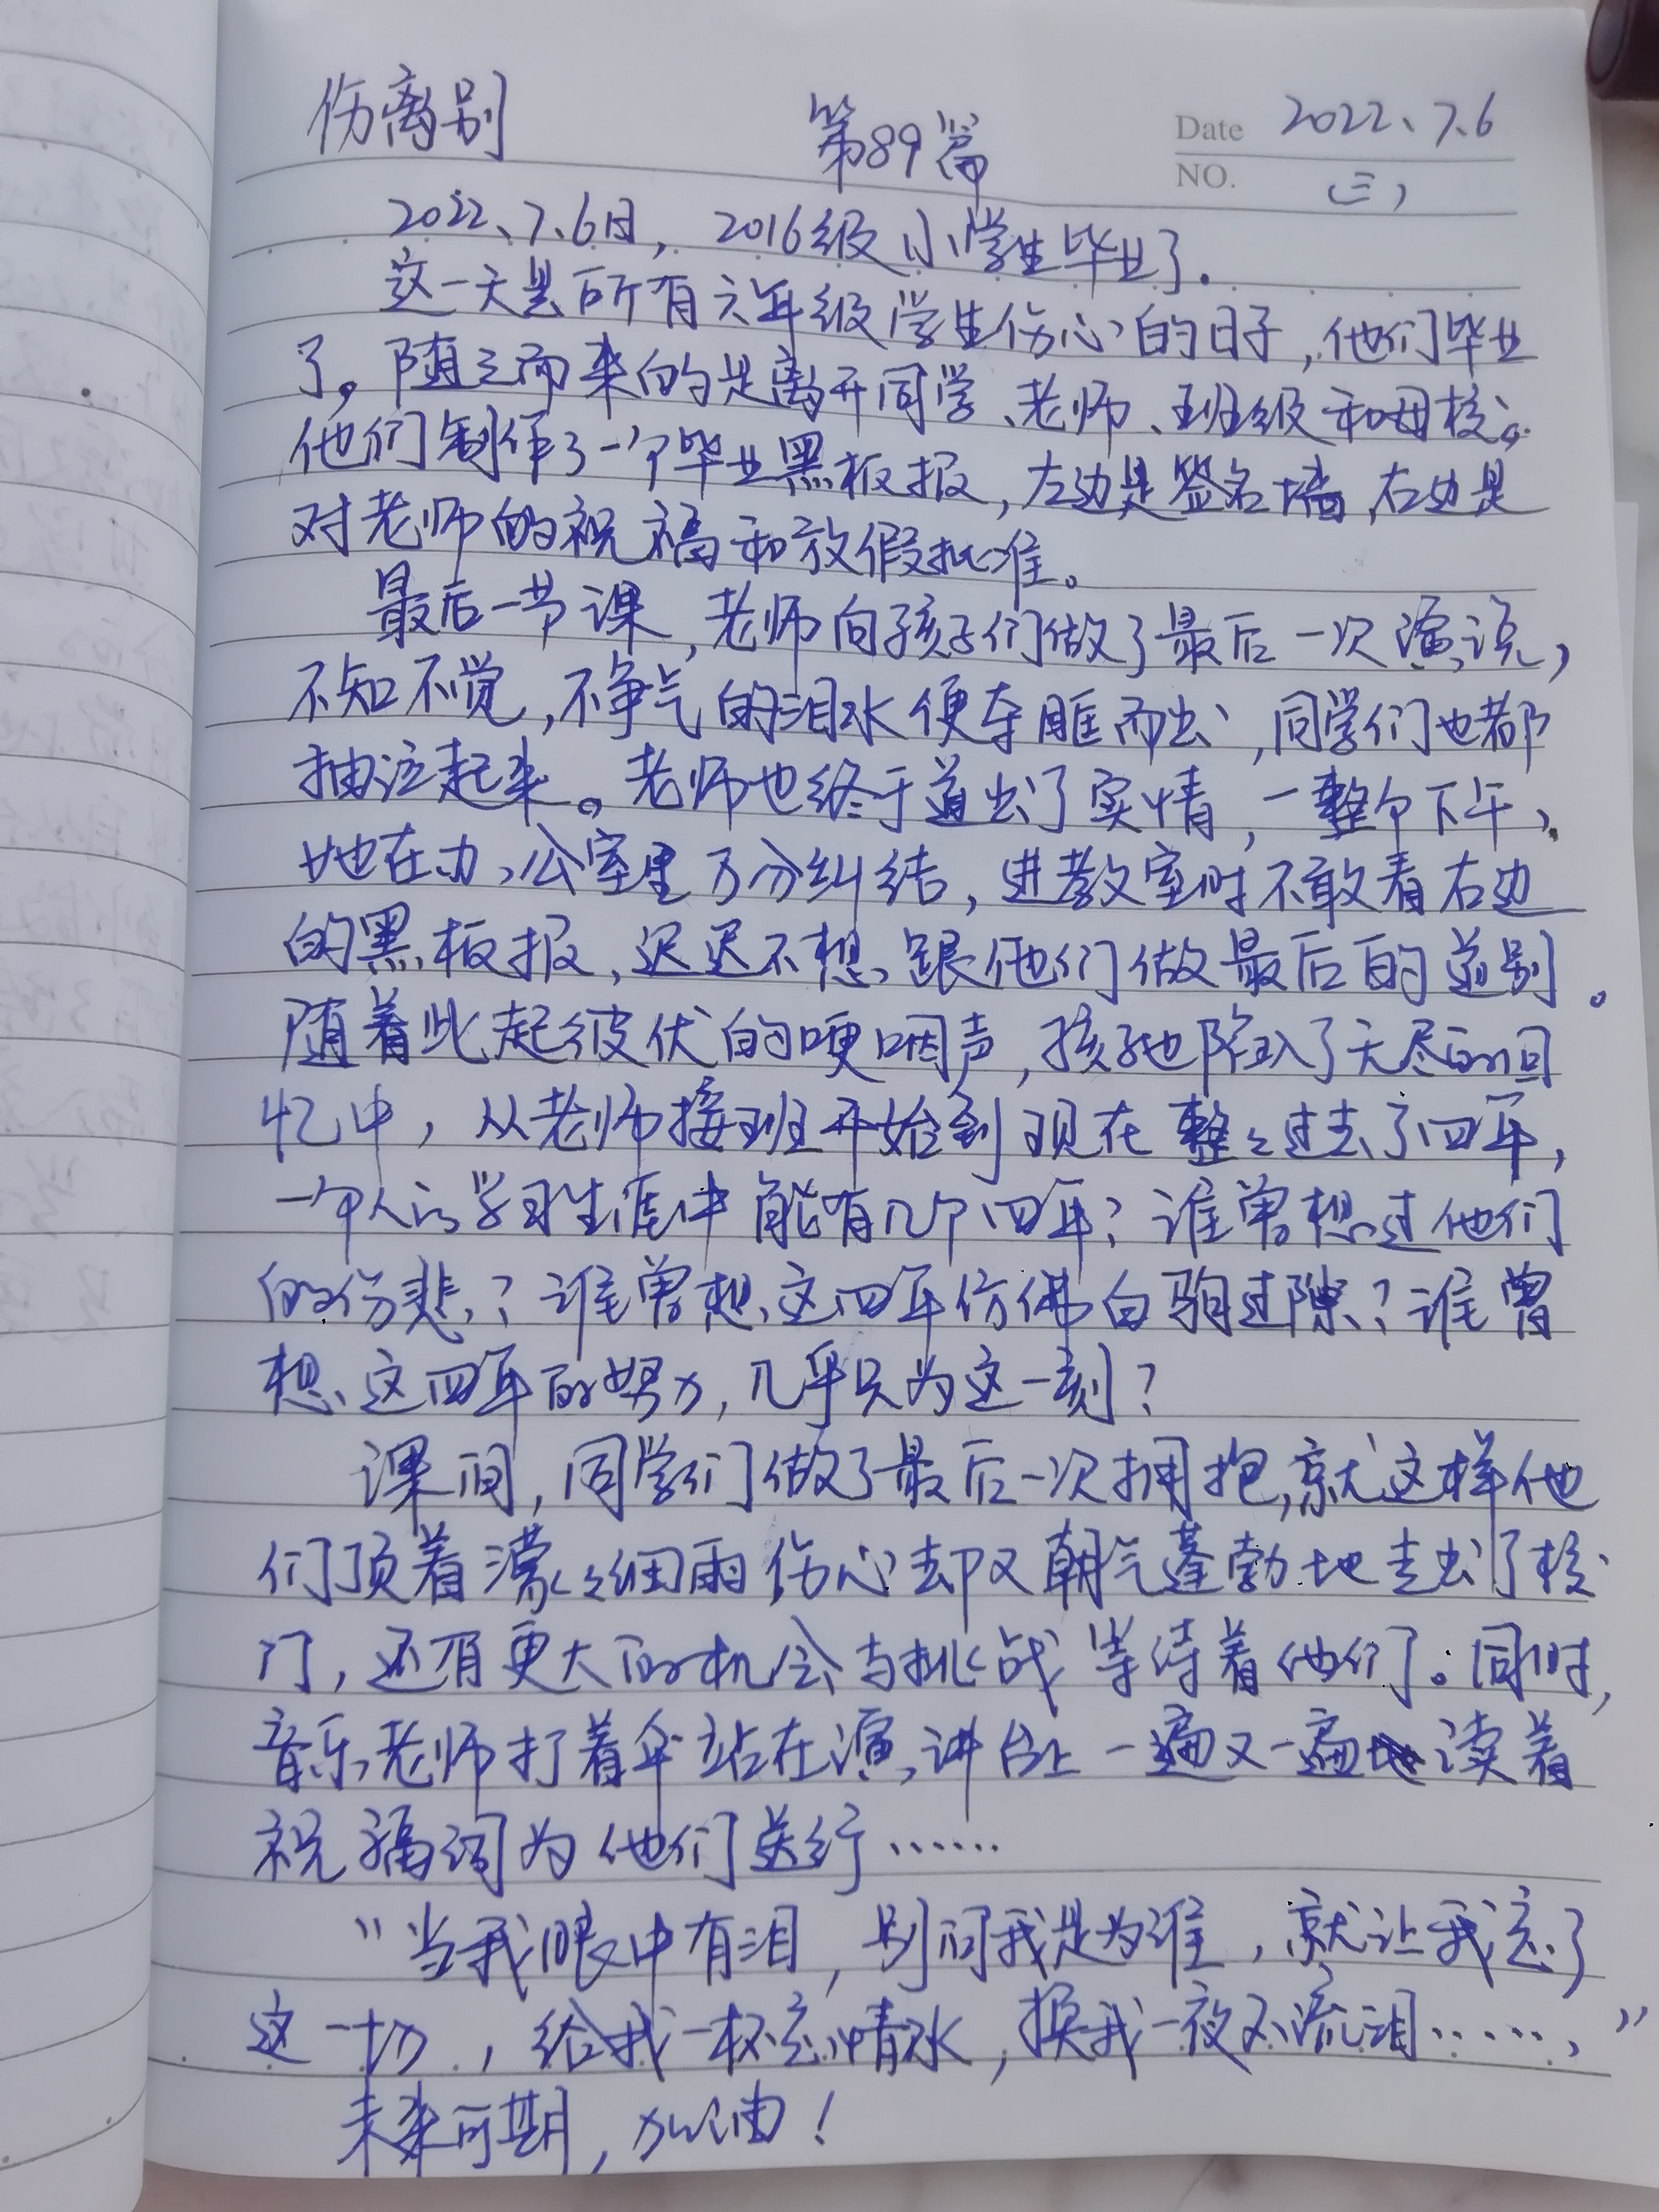 伤离别 第89篇 Date 2022、7、6
NO. (三)
2022、7、6日，2016级小学生毕业了.
这一天是所有六年级学生伤心的日子，他们毕业
了。随之而来的是离开同学、老师、班级和母校。
他们制作了一个毕业黑板报，左边是签名墙，右边是
对老师的祝福和放假批准。
最后一节课，老师向孩子们做了最后一次演说，
不知不觉，不争气的泪水便夺眶而出，同学们也都
抽泣起来。老师也终于道出了实情，一整个下午，
她在办公室里万分纠结，进教室时不敢看右边
的黑板报，迟迟不想跟他们做最后的道别。
随着此起彼伏的哽咽声，孩子也陷入了无尽的回
忆中，从老师接班开始到现在整整过去了四年，
一个人的学习生涯中能有几个四年？谁曾想过他们
的伤悲？谁曾想这四年仿佛白驹过隙？谁曾
想这四年的努力，几乎只为这一刻？
课间，同学们做了最后一次拥抱，就这样他
们顶着濛濛细雨伤心却又朝气蓬勃地走出了校
门，还有更大的机会与挑战等待着他们。同时，
音乐老师打着伞站在演讲台上一遍又一遍地读着
祝福词为他们送行……
“当我眼中有泪，别问我是为谁，就让我忘了
这一切，给我一杯忘情水，换我一夜不流泪……”
未来可期，加油！